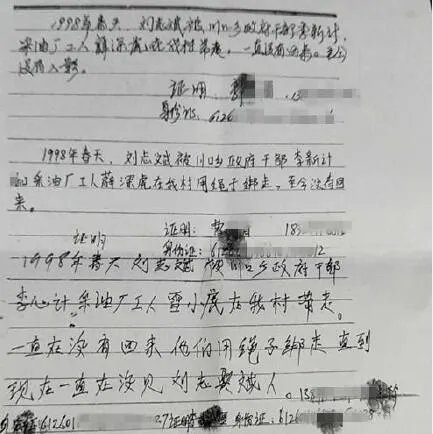 1998年春天 刘志斌被川口乡政府干部李新计
采油厂工人薛深虎在我村带走。一直没有回来。至今
没有人影。
证明 郭
身份证: 6126
1998年春天、刘志斌被川口乡政府干部李新计
和采油厂工人薛深虎在我村用绳子绑走,至今没有回
来。
证明: 183
证明
身份证: 6 12
1998年春天刘志斌 川口乡政府干部
李心计采油厂工人雪小虎在我村带走。
一直在没有回来他们用绳子绑走 直到
现在一直在没见刘志斌人。 13
612601 证明 身份证: 6126